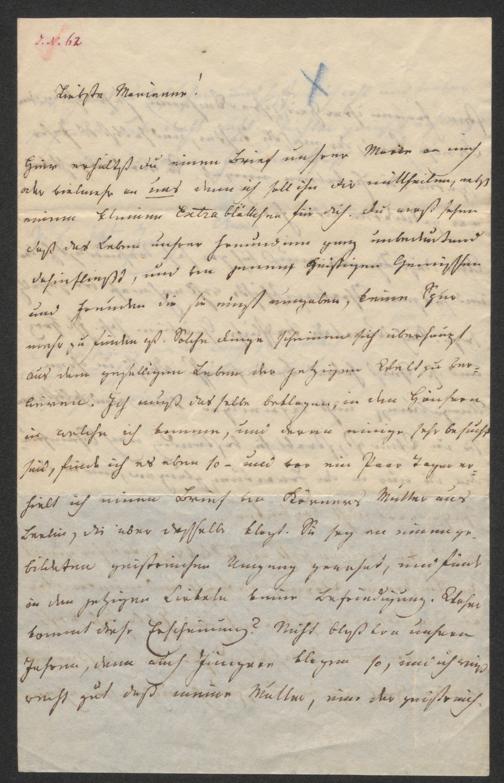 J. N. 62
Liebste Marianne!
Hier erhältst du einen Brief unsrer Marie an mich,
oder vielmehr an uns denn ich soll ihn dir mittheilen, nebst
einem Extrablättchen für dich. Du wirst sehen
daß das Leben unsrer Freundinn ganz unbedeutend
dahinfließt, und von jenen geistigen Genüssen
und Freunden die sie einst umgaben, keine Spur
mehr zu finden ist. Solche Dinge scheinen sich überhaupt
aus dem geselligen Leben der jetzigen Welt zu ver-
lieren. Ich muß dasselbe beklagen, in den Häusern
in welche ich komme, und deren einige sehr besucht
sind, finde ich es eben so – und vor ein Paar Tagen er-
hielt ich einen Brief von Körners Mutter aus
Berlin, die über dasselbe klagt. Sie sey an einen ge-
bildeten geistreichen Umgang gewöhnt, und finde
in den jetzigen Zirkeln keine Befriedigung. Woher
kommt diese Erscheinung? Nicht bloß von unsern
Jahren, denn auch Jüngere klagen so, und ich weiß
recht gut daß meine Mutter, und der geistreich-